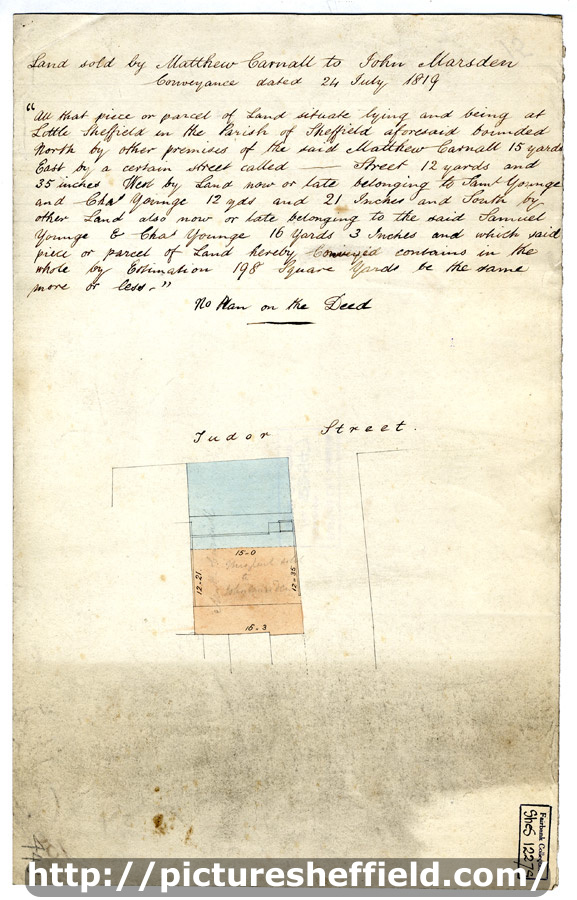 Land sold by Matthew Carnall to John Marsden
Conveyance dated 24 July 1819
"All that piece or parcel of Land situate lying and being at
Little Sheffield in the Parish of Sheffield aforesaid bounded
North by other premises of the said Matthew Carnall 15 yards
East by a certain street called —— Street 12 yards and
35 inches West by Land now or late belonging to Saml Younge
and Chas Younge 12 yds and 21 Inches and South by
other Land also now or late belonging to the said Samuel
Younge & Chas Younge 16 Yards 3 Inches and which said
piece or parcel of Land hereby Conveyed contains in the
whole by Estimation 198 Square Yards be the same
more or less."
No Plan on the Deed
Tudor Street.
15-0
12-21
12-35
15-3
Fairbank Collection
SheS 1227
http://picturesheffield.com/